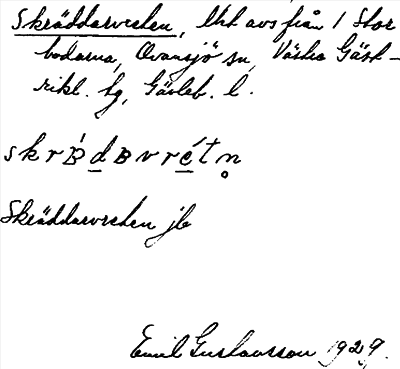 Skräddarvreten, lht avs från 1 Stor
bodarna, Ovansjö sn, Västra Gäst-
rikl. tg, Gävleb. l.
Skräddarvreten jb
Emil Gustavsson 1929.